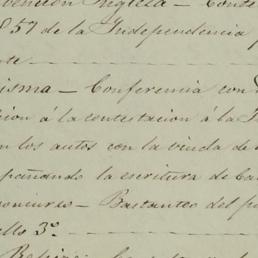 vención Inglesa — Conte
857 de la Independencia p
te —
isma — Conferencia con
ción á la contestación á la
n los autos con la viuda de
pañando la escritura de
Bastanteo del po
llo 3º —